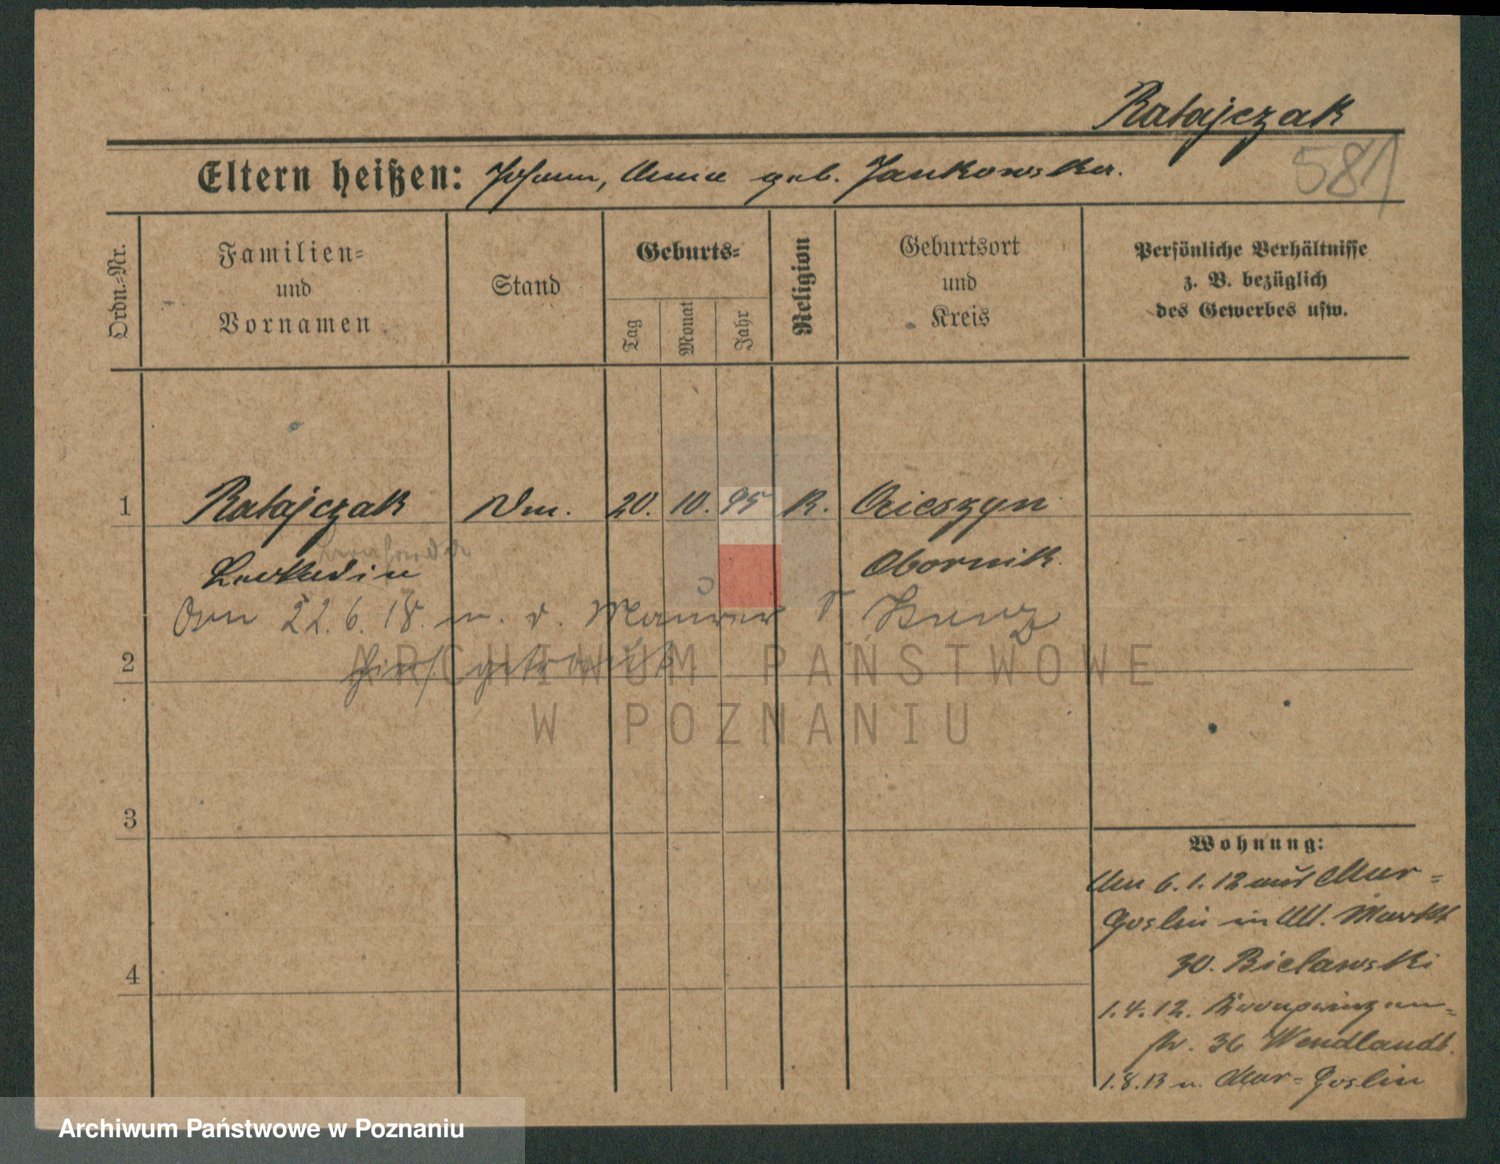 Ratajczak
581
Eltern heißen: Johann, Anna geb. Jankowska.
Ordn.-Nr.
Familien-
und
Vornamen
Stand
Geburts-
Tag
Monat
Jahr
Religion
Geburtsort
und
Kreis
Persönliche Verhältnisse
z. B. bezüglich
des Gewerbes usw.
1
Ratajczak
20. 10. 95
K.
Obornik.
22. 6. 18. m. d. Maurer
2
ARCHIWUM PAŃSTWOWE
W POZNANIU
3
4
Wohnung:
Am 6. 1. 12 aus Mur-
Goslin in Alt. Markt
30. Bielawski
1. 4. 12. Kronprinzen-
str. 36 Wendlandt.
1. 8. 13 n. Mur-Goslin
Archiwum Państwowe w Poznaniu